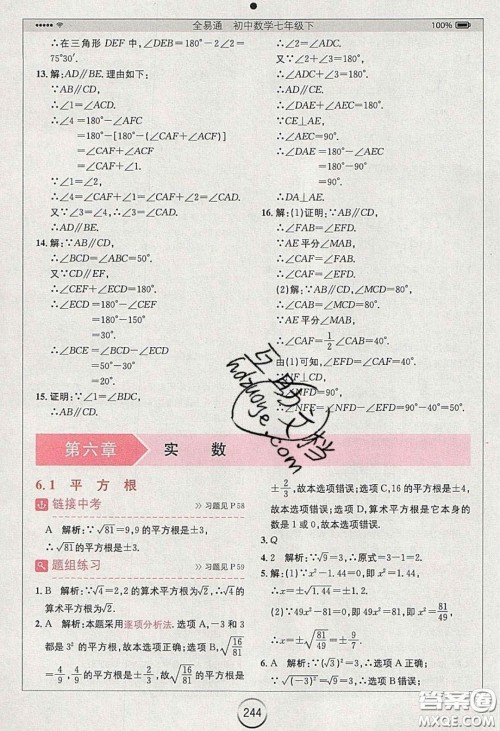 全易通 初中数学七年级下
100%
∴在三角形 DEF 中,∠DEB=180°-2∠2=
75°30′.
13.解:AD∥BE.理由如下:
∵AB∥CD,
∴∠1=∠ACD.
∴∠4=180°-∠AFC
=180°-[180°-(∠CAF+∠ACF)]
=∠CAF+∠ACF.
∵∠1=∠2,
∴∠4=∠CAF+∠1=∠CAF+∠2=∠CAD.
又∵∠3=∠4,∴∠3=∠CAD.
∴AD∥BE.
14.解:∵AB∥CD,
∴∠BCD=∠ABC=50°.
又∵CD∥EF,
∴∠CEF+∠ECD=180°.
∴∠ECD=180°-∠CEF
=180°-150°
=30°.
∴∠BCE=∠BCD-∠ECD
=50°-30°
=20°.
15.证明:∵∠1=∠BDC,
∴AB∥CD.
∴∠2=∠ADC.
又∵∠2+∠3=180°,
∴∠ADC+∠3=180°.
∴AD∥CE.
∴∠DAE+∠AEC=180°.
∵CE⊥AE,
∴∠AEC=90°.
∴∠DAE=180°-∠AEC
=180°-90°
=90°.
∴DA⊥AE.
16.解:(1)证明:∵AB∥CD,
∴∠FAB=∠EFD.
∵AE平分∠MAB,
∴∠CAF=∠FAB.
∴∠CAF=∠EFD.
(2)解:∵AB∥CD,∠MCD=80°,
∴∠CAB=∠MCD=80°.
∵AE平分∠CAB,
∴∠CAF=1/2∠CAB=40°.
由(1)可知,∠EFD=∠CAF=40°.
∵NF⊥CD,
∴∠NFD=90°.
∴∠NFE=∠NFD-∠EFD=90°-40°=50°.
第六章 实 数
6.1 平方根
链接中考 习题见 P58
A 解析:∵√81=9,9的平方根是±3,
∴√81的平方根是±3.
题组练习 习题见 P59
1.B 解析:∵√4=2,2的算术平方根为√2,∴√4的
算术平方根为√2.
2.A 解析:本题采用逐项分析法.选项A,-3和3
都是3²的平方根,故本选项正确;选项B,√(16/81)
=4/9,4/9的平方根是±2/3,故√(16/81)的平方根是
±2/3,故本选项错误;选项C,16的平方根是±4,
故本选项错误;选项D,算术平方根是它本身的
数是1或0,故本选项错误.
3.Q
4.2 解析:∵√9=3,∴原式=3-1=2.
5.解:(1)∵x²-1.44=0,即x²=1.44,
∴x=±√1.44=±1.2.
(2)∵49x²-81=0,即49x²=81,即x²=81/49,
∴x=±√(81/49)=±9/7.
6.A 解析:∵√9=3,∴选项A正确.
∵√(-3)²=√9=3,∴选项B错误.
244
互助文档
hdzuoye.com
答案圈
MXQE.COM